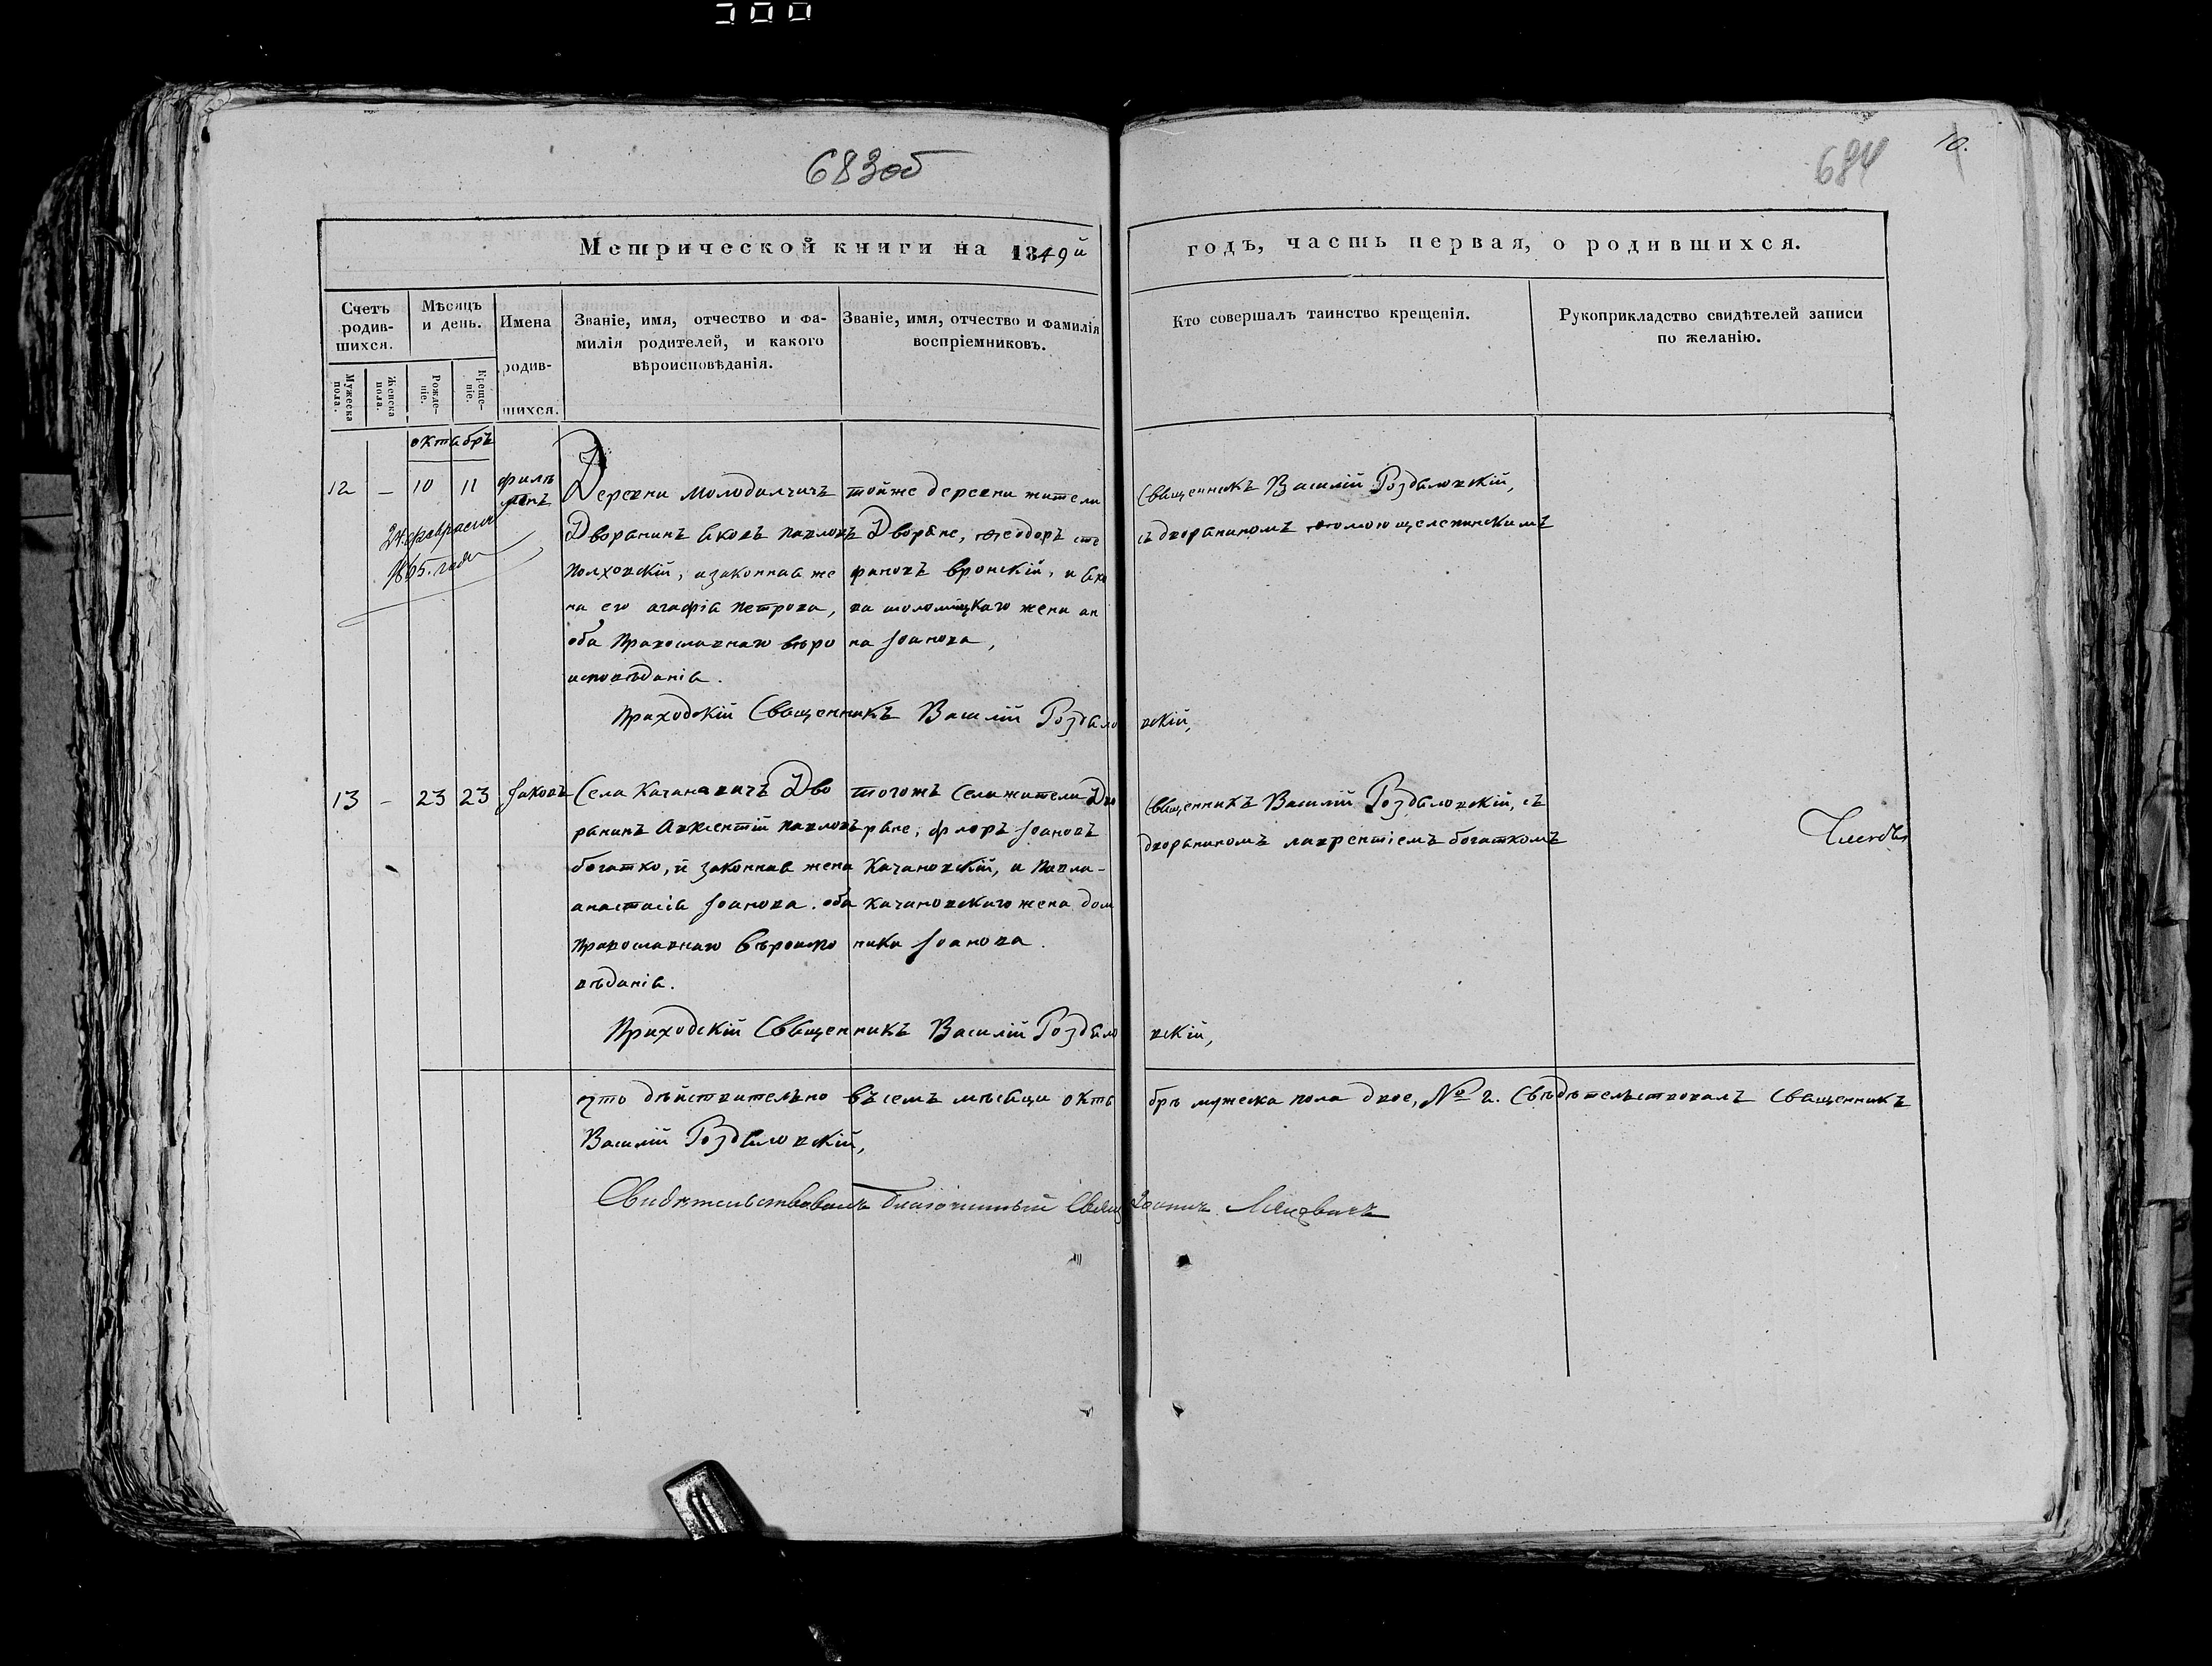 300
683об
684
10.
Метрической книги на 1849й
годъ, часть первая, о родившихся.
Счетъ родив-шихся.
Мужеска пола.
Женска пола.
Мѣсяцъ и день.
Рожде-ніе.
Креще-ніе.
Имена родив-шихся.
Званіе, имя, отчество и фа-
милія родителей, и какого
вѣроисповѣданія.
Званіе, имя, отчество и фамилія
воспріемниковъ.
Кто совершалъ таинство крещенія.
Рукоприкладство свидѣтелей записи
по желанію.
октабръ
12 — 10 11
филимонъ
24. февраля
1865. года
Деревни Молодилчичъ
Дворанинъ Аковъ Павловъ
Полховскій, изаконная же
на его агафіа Петрова,
оба Православнаго вѣро
исповѣданіа.
тойже деревни жители
Дворане, Ѳеодоръ сте
фановъ вронскій, и Ако
ва жена ан
на Іоанова,
Священникъ Василій Роздаловскій,
съ двораниномъ
Приходскій Священникъ Василій Роздаловскій,
13 - 23 23 Іаковъ
Села Качановичъ Дво
ранинъ Авксентій Павловъ
богатко, и законная жена
анастасіа Іоанова. оба
Православнаго Вѣроиспо
вѣданіа.
тогожъ Села жители Дво
ране, флоръ Іоановъ
Качановскій, и Павла-
Качановскаго жена дом
ника Іоанова.
Священникъ Василій Роздаловскій, съ
двораниномъ лаврентіемъ богаткомъ
Приходскій Священникъ Василій Роздаловскій,
что дѣйствительно въ семъ мѣсацѣ октабрѣ мужеска пола двое, № 2. Свѣдѣтельствовалъ Священникъ
Василій Роздаловскій,
Свидѣтельствовалъ благочинный Свящ